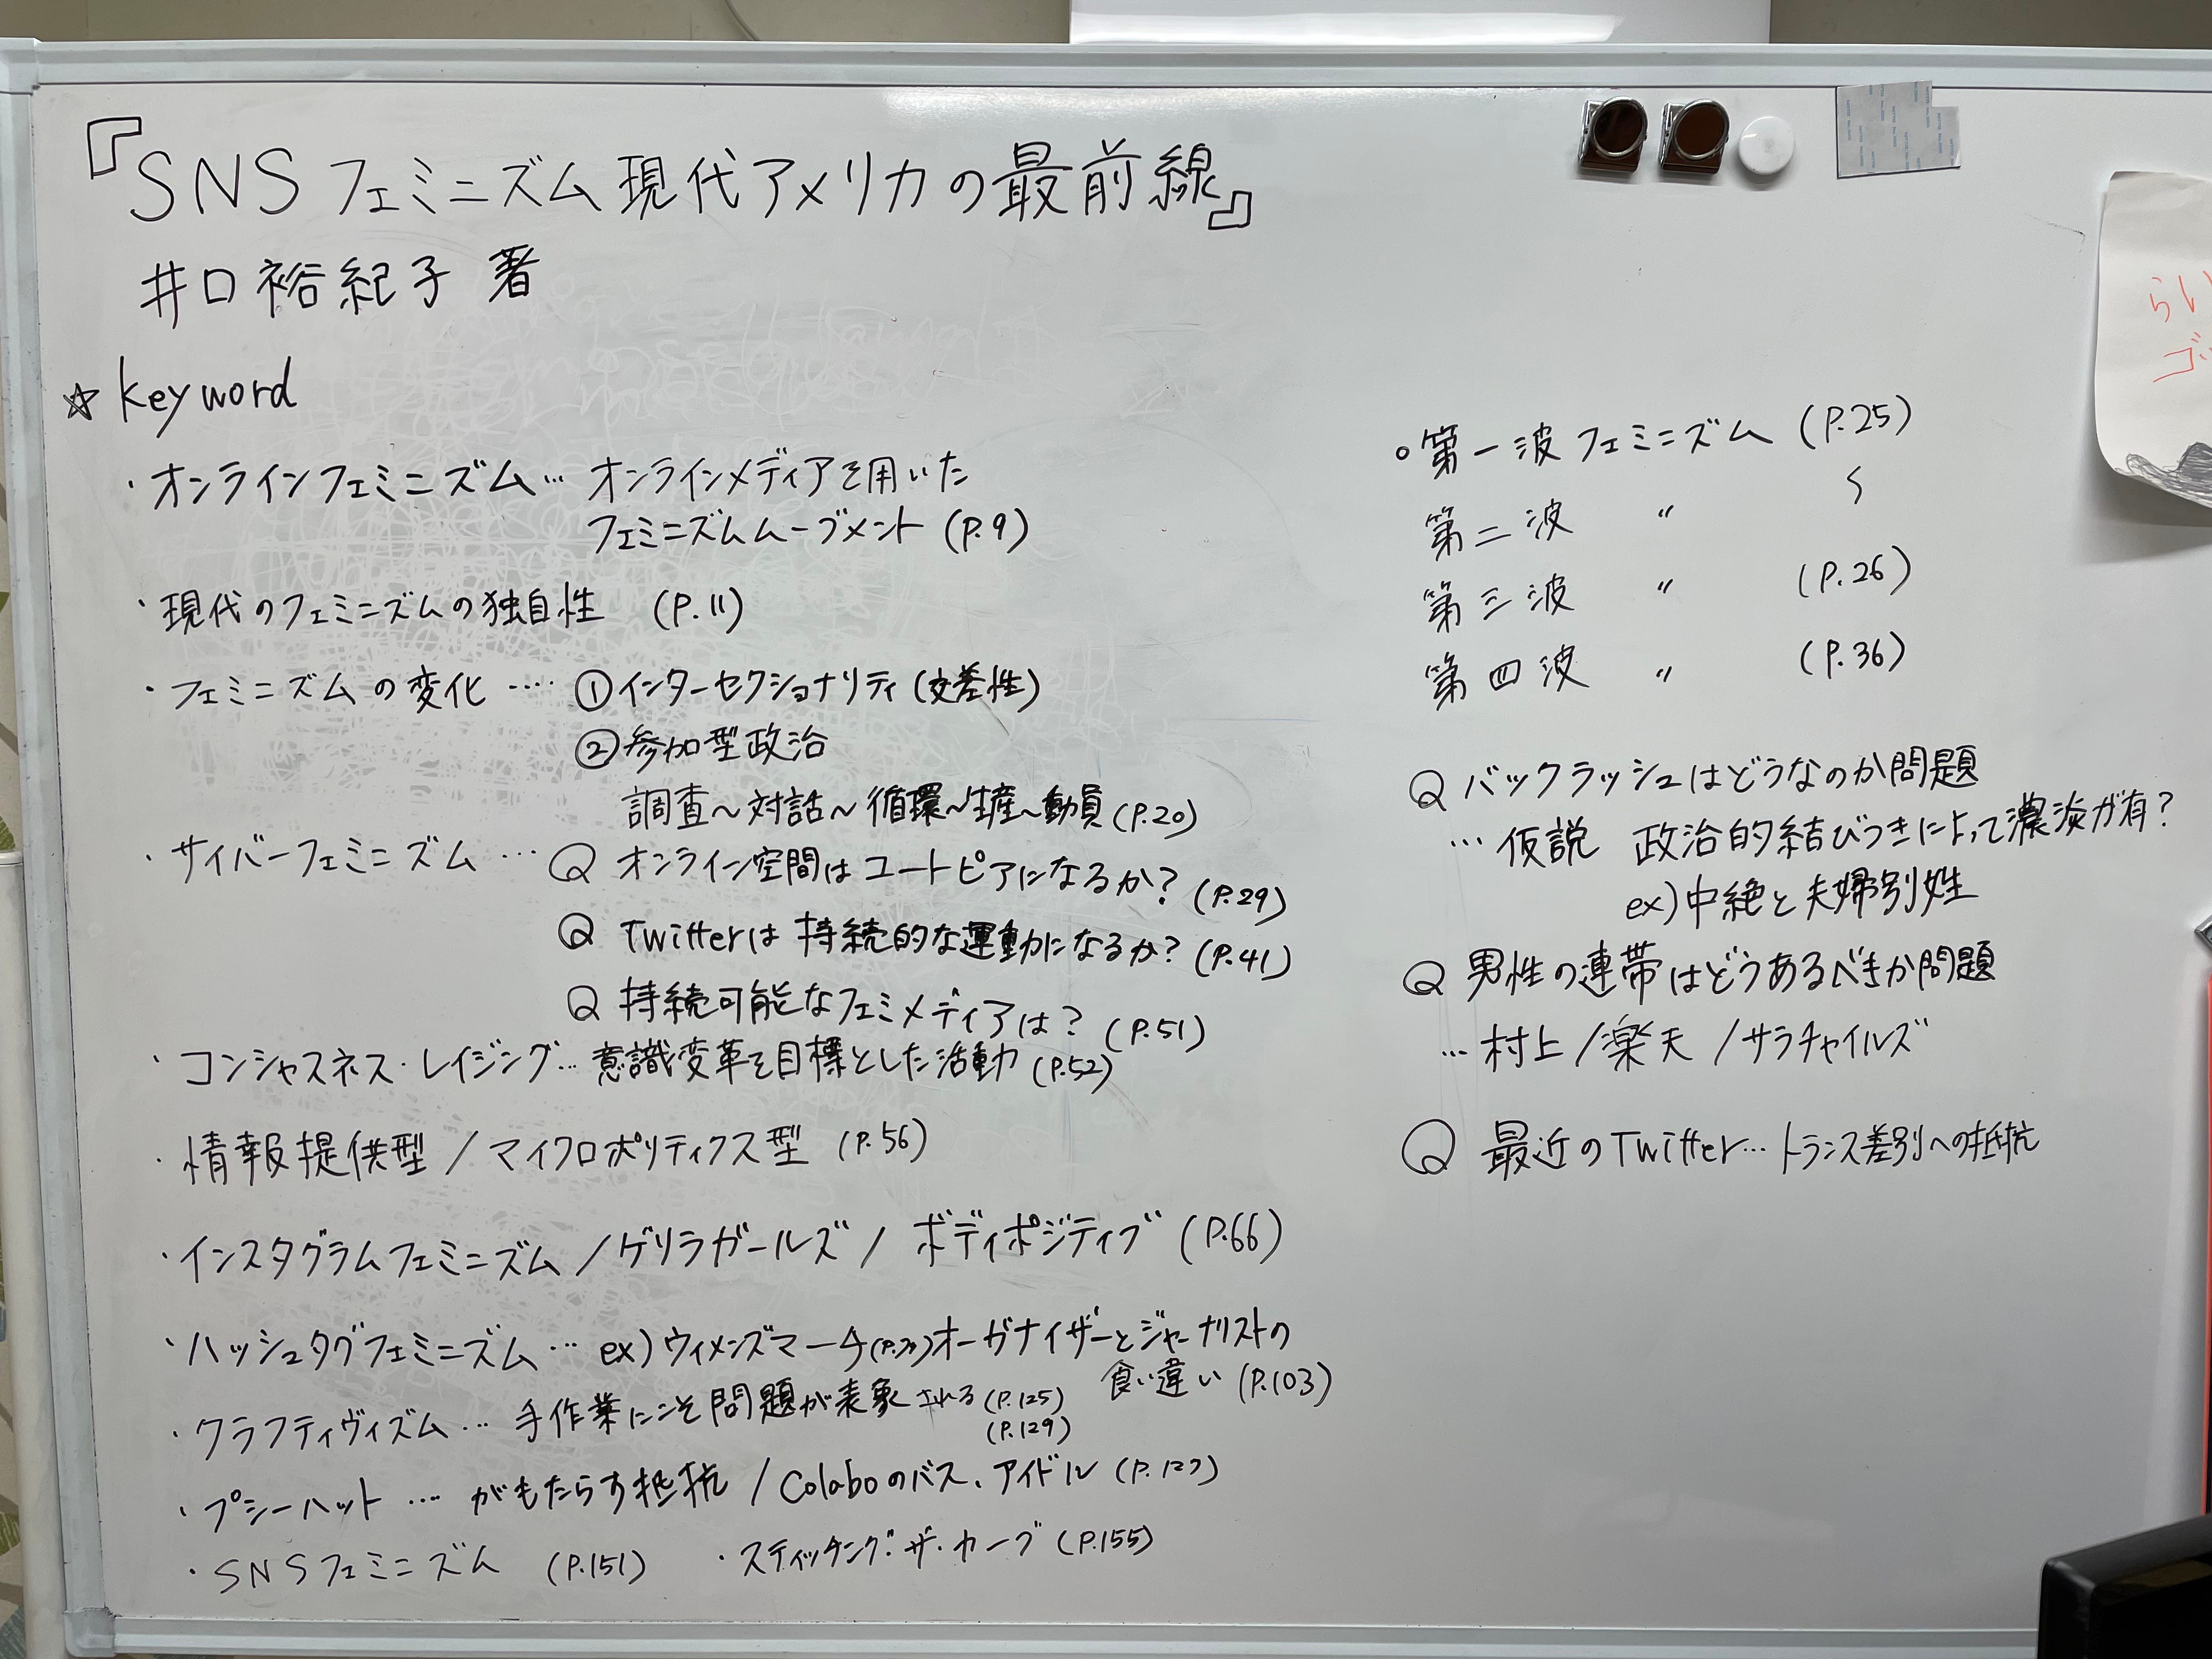 『SNSフェミニズム現代アメリカの最前線』
井口裕紀子 著
☆ keyword
・オンラインフェミニズム… オンラインメディアを用いた
フェミニズムムーブメント (P.9)
・現代のフェミニズムの独自性 (P.11)
・フェミニズムの変化 ‥‥ ①インターセクショナリティ(交差性)
②参加型政治
調査〜対話〜循環〜生産〜動員(P.20)
・サイバーフェミニズム … Q オンライン空間はユートピアになるか? (P.29)
Q Twitterは持続的な運動になるか? (P.41)
Q 持続可能なフェミメディアは? (P.51)
・コンシャスネス・レイジング… 意識変革を目標とした活動 (P.52)
・情報提供型 / マイクロポリティクス型 (P.56)
・インスタグラムフェミニズム / ゲリラガールズ / ボディポジティブ (P.66)
・ハッシュタグフェミニズム … ex) ウィメンズマーチ オーガナイザーとジャーナリストの
食い違い (P.103)
・クラフティヴィズム … 手作業にこそ問題が表象される (P.125)
(P.129)
・プシーハット ‥‥ がもたらす抵抗 / Colaboのバス、アイドル
・SNSフェミニズム (P.151) ・スティッチング・ザ・カーブ (P.155)
○第一波フェミニズム (P.25)
第二波 〃 〜
第三波 〃 (P.26)
第四波 〃 (P.36)
Q バックラッシュはどうなのか問題
… 仮説 政治的結びつきによって濃淡が有?
ex)中絶と夫婦別姓
Q 男性の連帯はどうあるべきか問題
… 村上 / 楽天 / サラチャイルズ
Q 最近のTwitter… トランス差別への抵抗
らい
ゴ